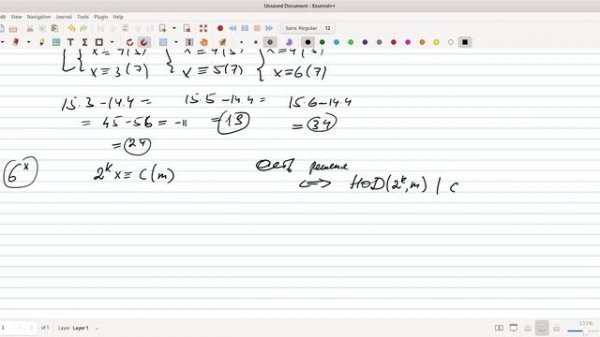 Unsaved Document - Xournal++
File Edit View Navigation Journal Tools Plugin Help
Sans Regular 12
x ≡ 3(7) x ≡ 5(7) x ≡ 6(7)
15.3 - 14.4 = 15.5 - 14.4 = 15.6 - 14.4
= 45 - 56 = -11 = 13 = 34
= 24
6ˣ 2ᵏx ≡ c(m) Есть решение
⟺ НОД(2ᵏ, m) | c
1 of 1 Layer Layer 1